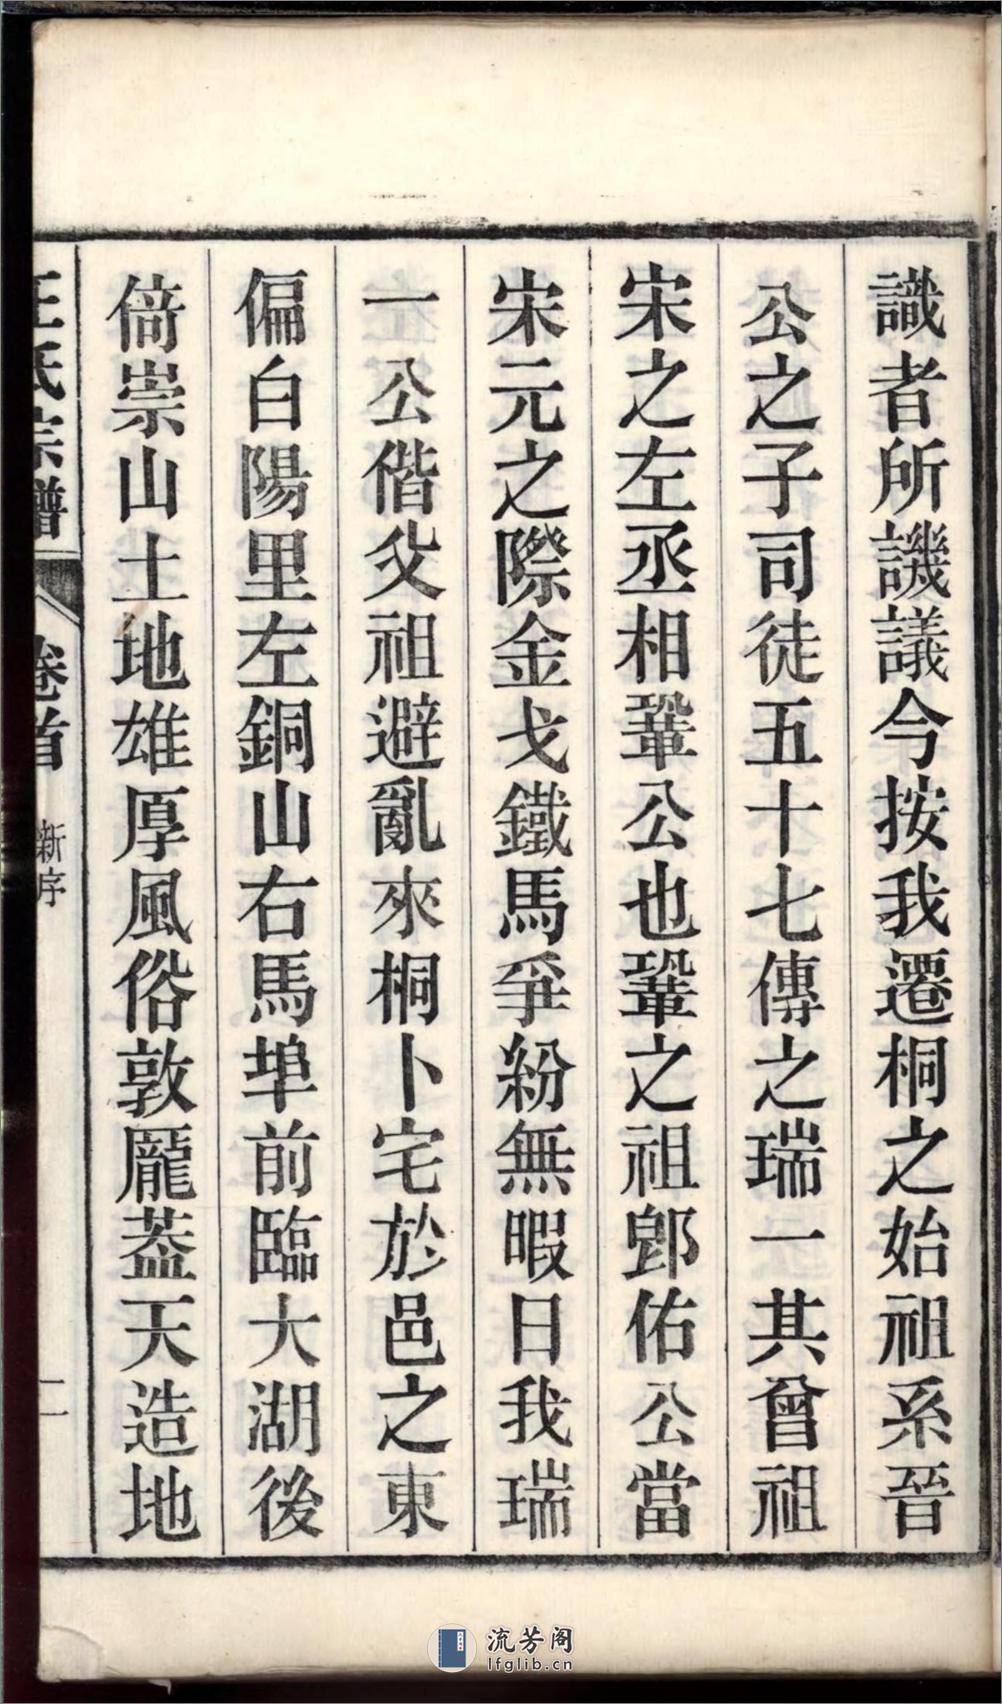 識者所譏議今按我遷桐之始祖系晉
公之子司徒五十七傳之瑞一其曾祖
宋之左丞相鞏公也鞏之祖郎佑公當
宋元之際金戈鐵馬爭紛無暇日我瑞
一公偕父祖避亂來桐卜宅於邑之東
偏白陽里左銅山右馬埠前臨大湖後
倚崇山土地雄厚風俗敦龐葢天造地
王氏宗譜 卷首 新序 二
流芳阁
lfglib.cn